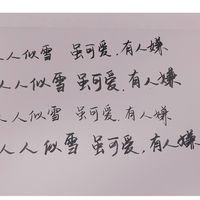 人人似雪 虽可爱,有人嫌
人人似雪 虽可爱,有人嫌
人人似雪 虽可爱,有人嫌
人人似雪 虽可爱,有人嫌